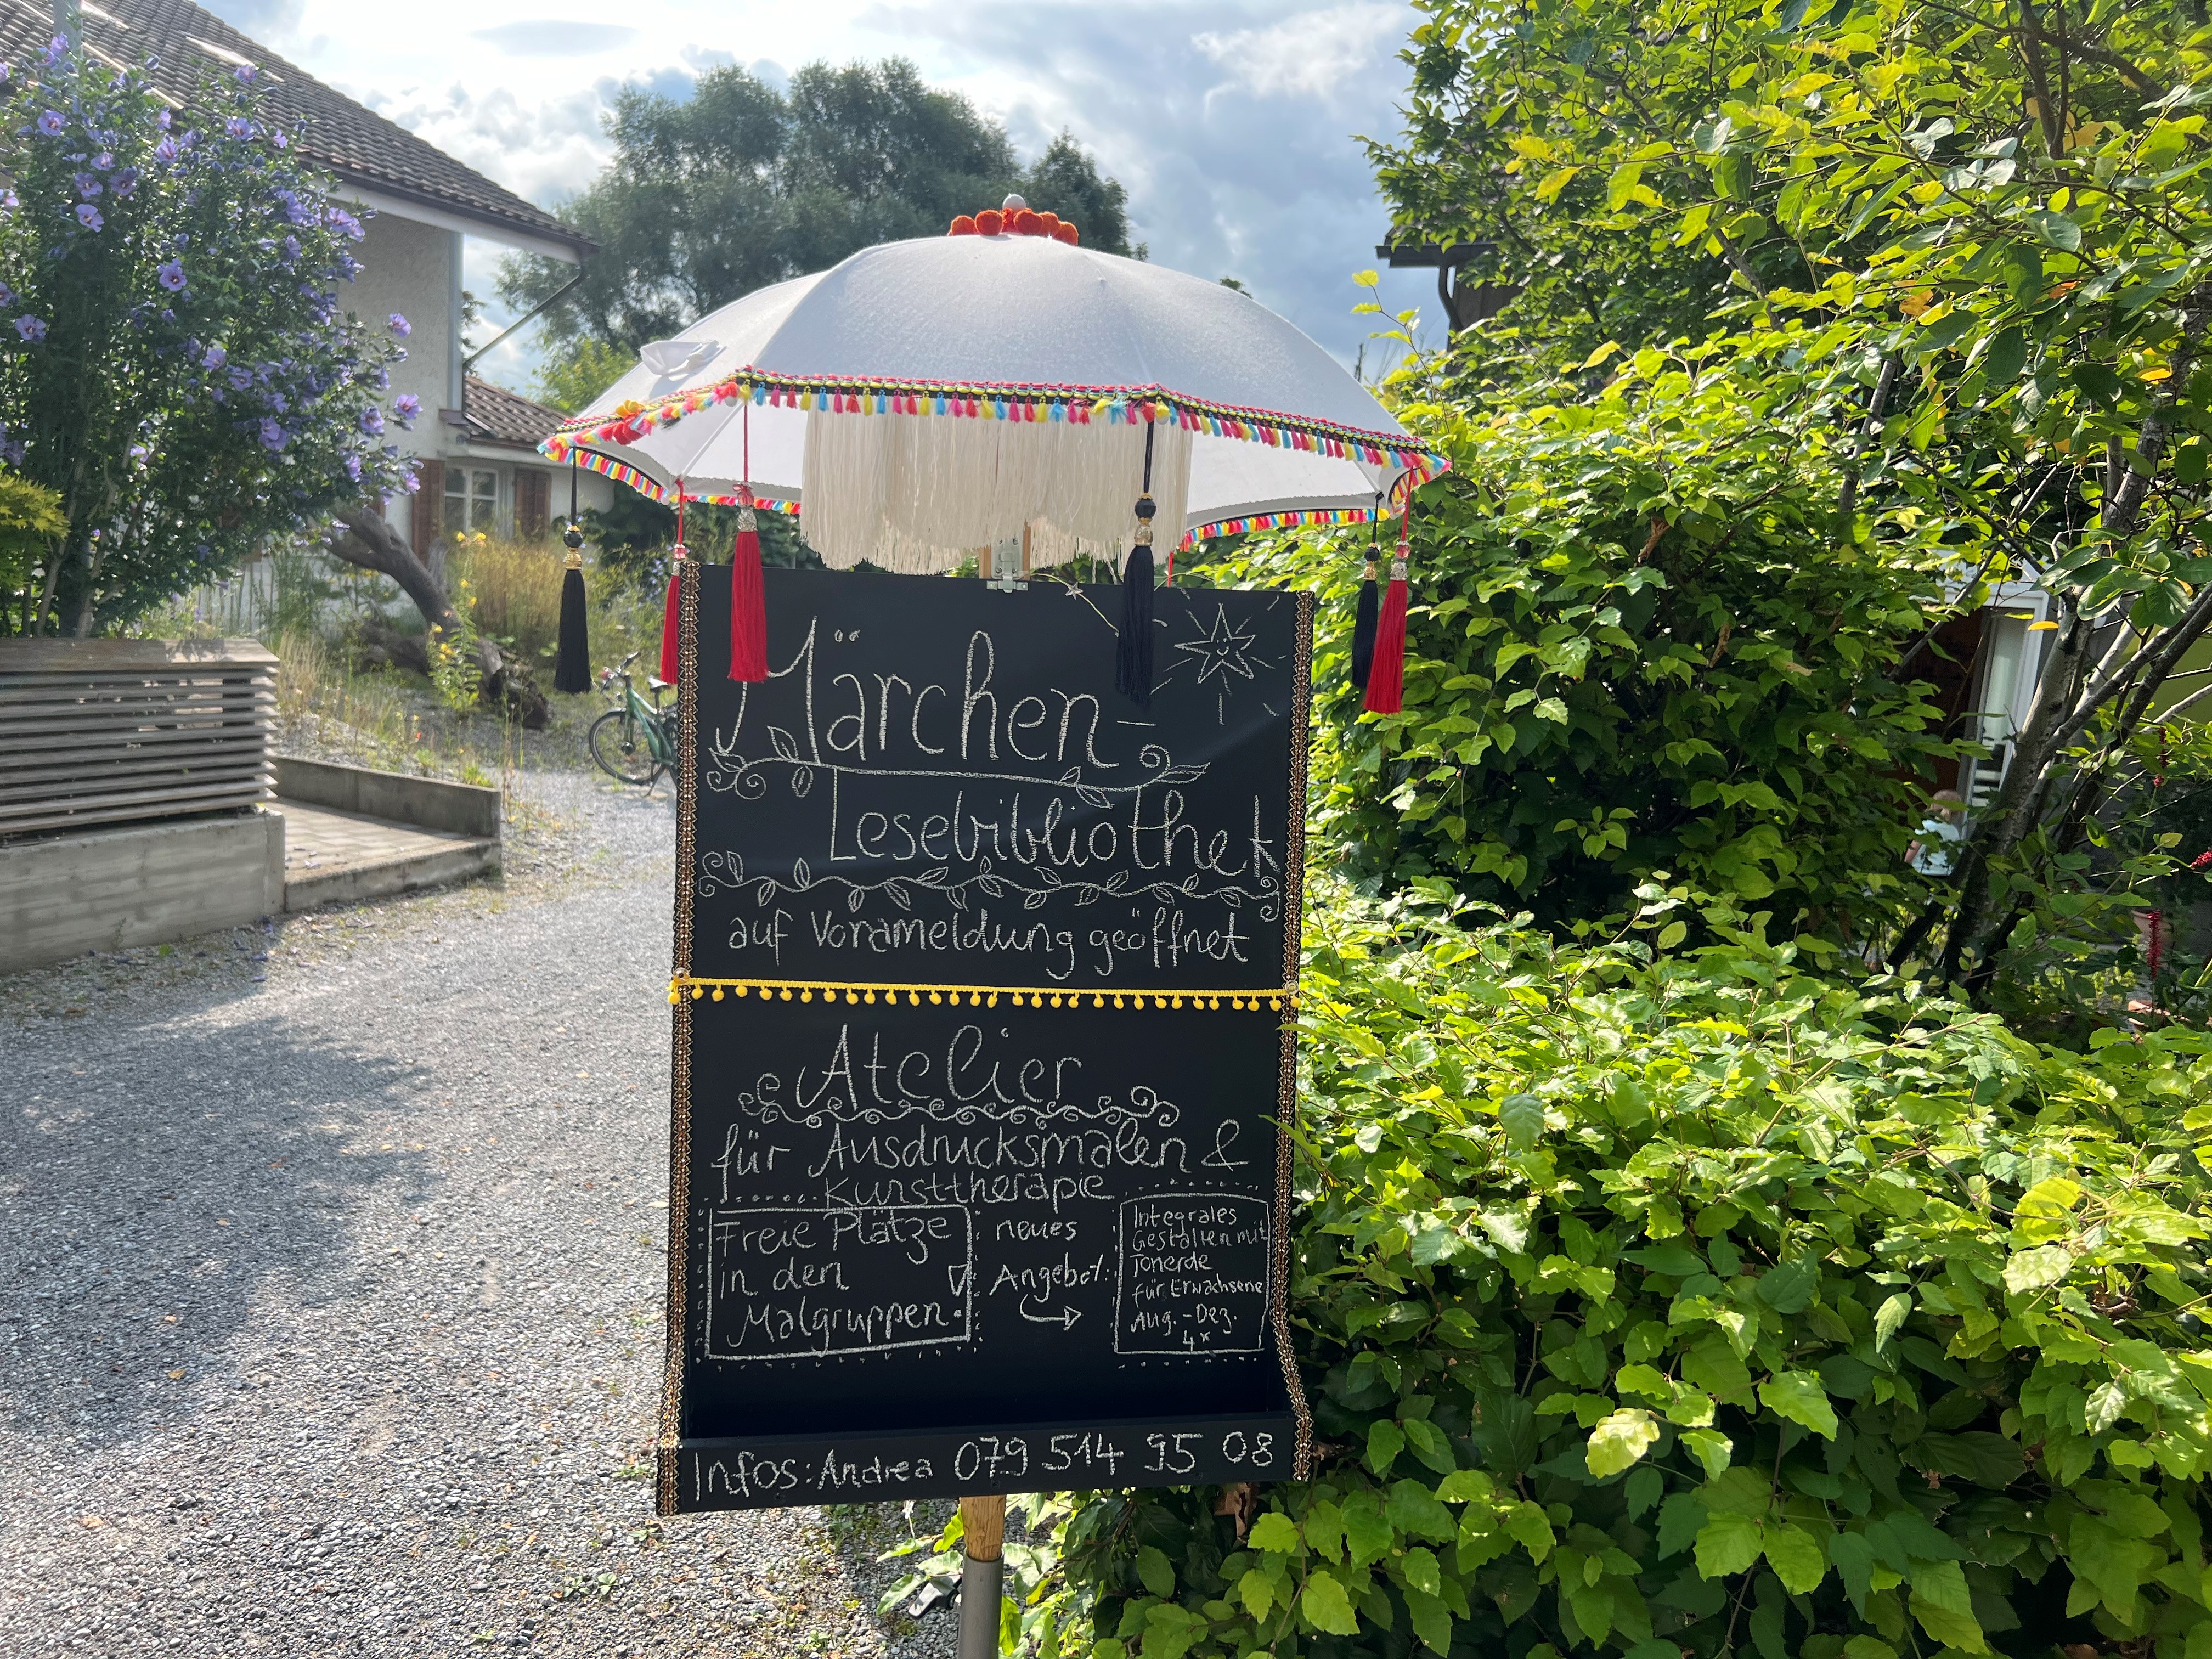 Märchen-
Lesebibliothek
auf Vorameldung geöffnet
Atelier
für Ausdrucksmalen &
Kunsttherapie
Freie Plätze
in den
Malgruppen.
neues
Angebot:
Integrales
Gestalten mit
Tonerde
für Erwachsene
Aug. - Dez.
4x
Infos: Andrea 079 514 95 08